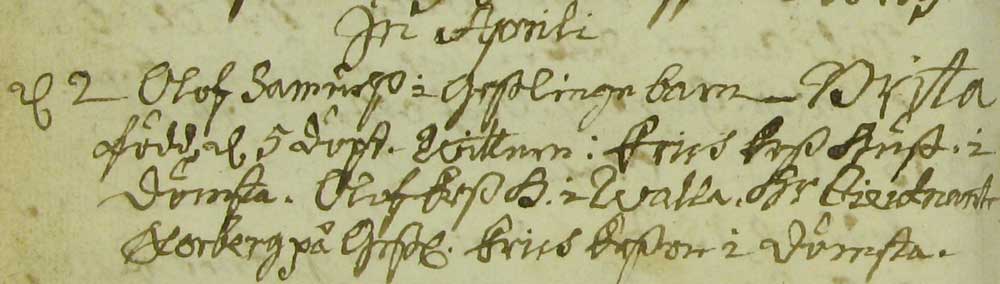 In Aprili
d 2 Olof Samuelß i Geßlinge barn Brita
född, d 5 döpt. Wittnen: Erics Erß Hust. i
Dömsta. Olof Erß H. i Walla. Hr Lieutnant
Norberg på Geßl. Erics Erßon i Dömsta.